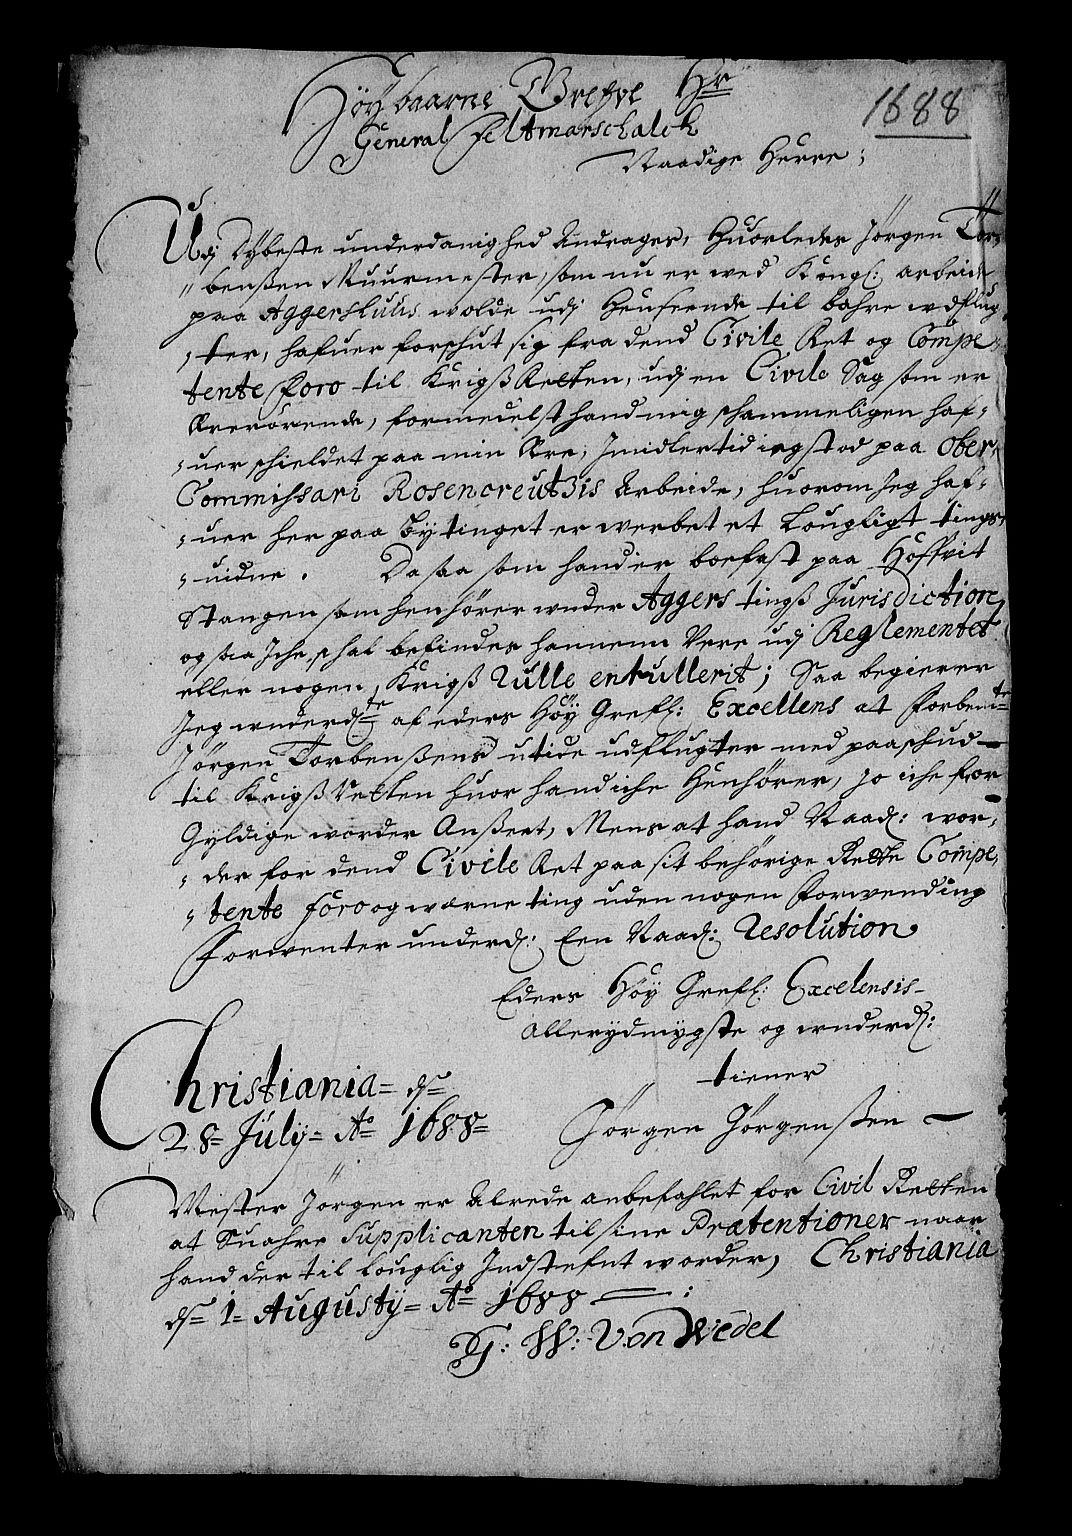 Höÿbaarne Grefve Hr
1688
General Feltmarschalck
Naadige Herre;
Udj Dÿbeste underdanighed Andrages, Huorledes Jörgen Tor„
„benßen Muurmester, som nu er ved Kongl: arbeide
paa Aggershuus wolde udj Henseende til bahre udflug
„ter, hafuer forschut sig fra dend Civile Ret og Compe„
tente foro til Krigß Retten, udj en Civile Sag som er
Ærerörende, formedelst hand mig schammeligen haf„
„uer schieldet paa min Ære; Jmidlertid ieg stod paa Ober„
Commissari Rosencreutzis Arbeide, huorom Jeg haf„
„uer her paa Bÿtinget erwerbet et Lougligt tings„
„uidne. Da saa som hand er boefast paa Hoffvit
Stangen som henhörer under Aggers tingß Jurisdiction,
og saa Iche schal befindes hannem Vere udj Reglementet
eller nogen Krigß Rulle enrullerit; Saa begierer
Jeg underdte af eders Höÿ Grefl: Excellens at forbemte
Jörgen Torbenßens utide udflugter med paaschud
til Krigß Retten huor hand iche Henhörer, jo iche for
Gÿldige worder Anßeet, Mens at hand Naadl: wor„
„der for dend Civile Ret paa sit behörige Rette Compe„
„tente foro og werne ting uden nogen forwending
Forwenter underd: Een Naadl: Resolution
Eders Höÿ Grefl: Excelensis
allerÿdmÿgste og underd:
tiener
Christiania dn
28 Julÿ Ao 1688
Jörgen Jörgensten
Mester Jörgen er Alrede anbefahlet for Civil Retten
at Suahre Supplicanten til sine Prætentioner naar
hand der til louglig Indstefnt worder, Christiania
dn 1 Augustÿ Ao 1688
G: W: Von Wedel